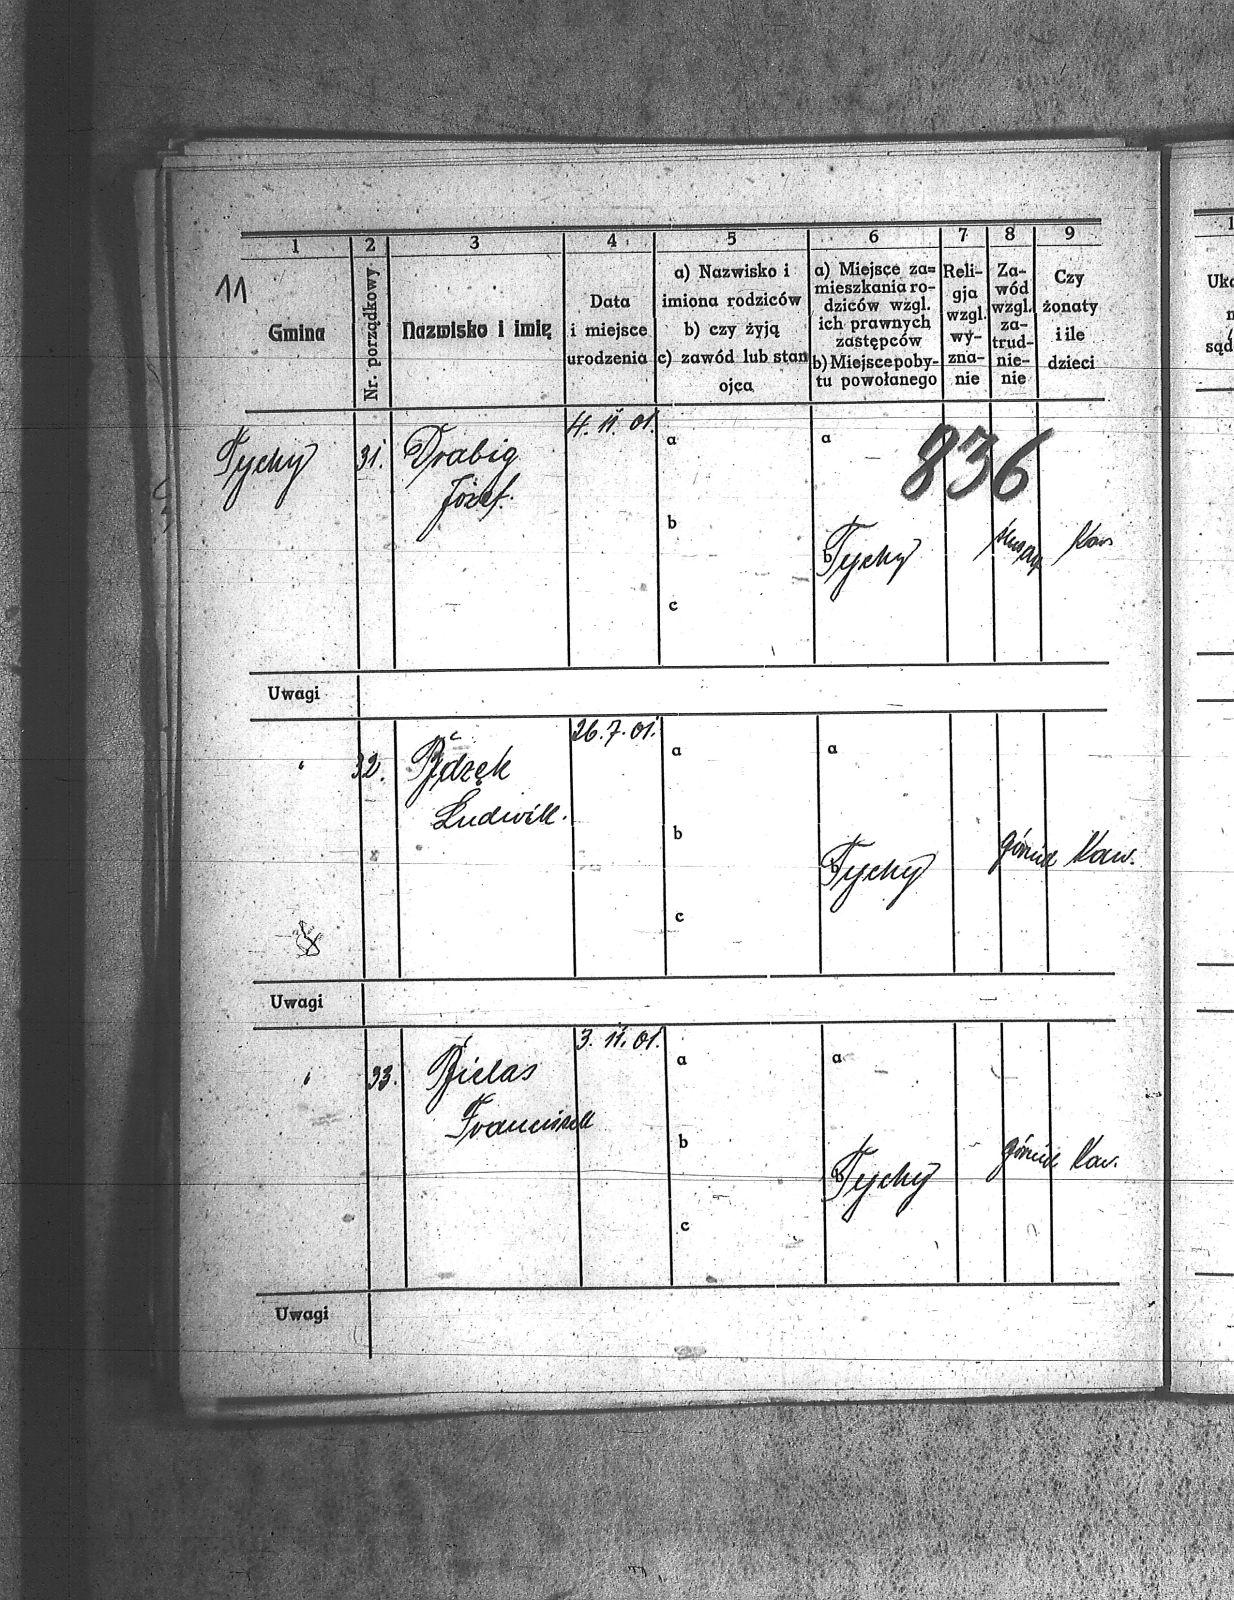 11
1 2 3 4 5 6 7 8 9
Gmina
Nr. porządkowy
Nazwisko i imię
Data
i miejsce
urodzenia
a) Nazwisko i
imiona rodziców
b) czy żyją
c) zawód lub stan
ojca
a) Miejsce za=
mieszkania ro-
dziców wzgl.
ich prawnych
zastępców
b) Miejsce poby-
tu powołanego
Reli-
gja
wzgl.
wy-
zna-
nie
Za-
wód
wzgl.
za-
trud-
nie-
nie
Czy
żonaty
i ile
dzieci
836
Tychy 31. Drabig 4. 11. 01. a a
Józef.
b b Tychy
c
Uwagi
32. 26. 7. 01. a a
Ludwik.
b b Tychy górnik Kaw.
c
Uwagi
33. Bielas 3. 11. 01. a a
Franciszek
b b Tychy górnik Kaw.
c
Uwagi
1